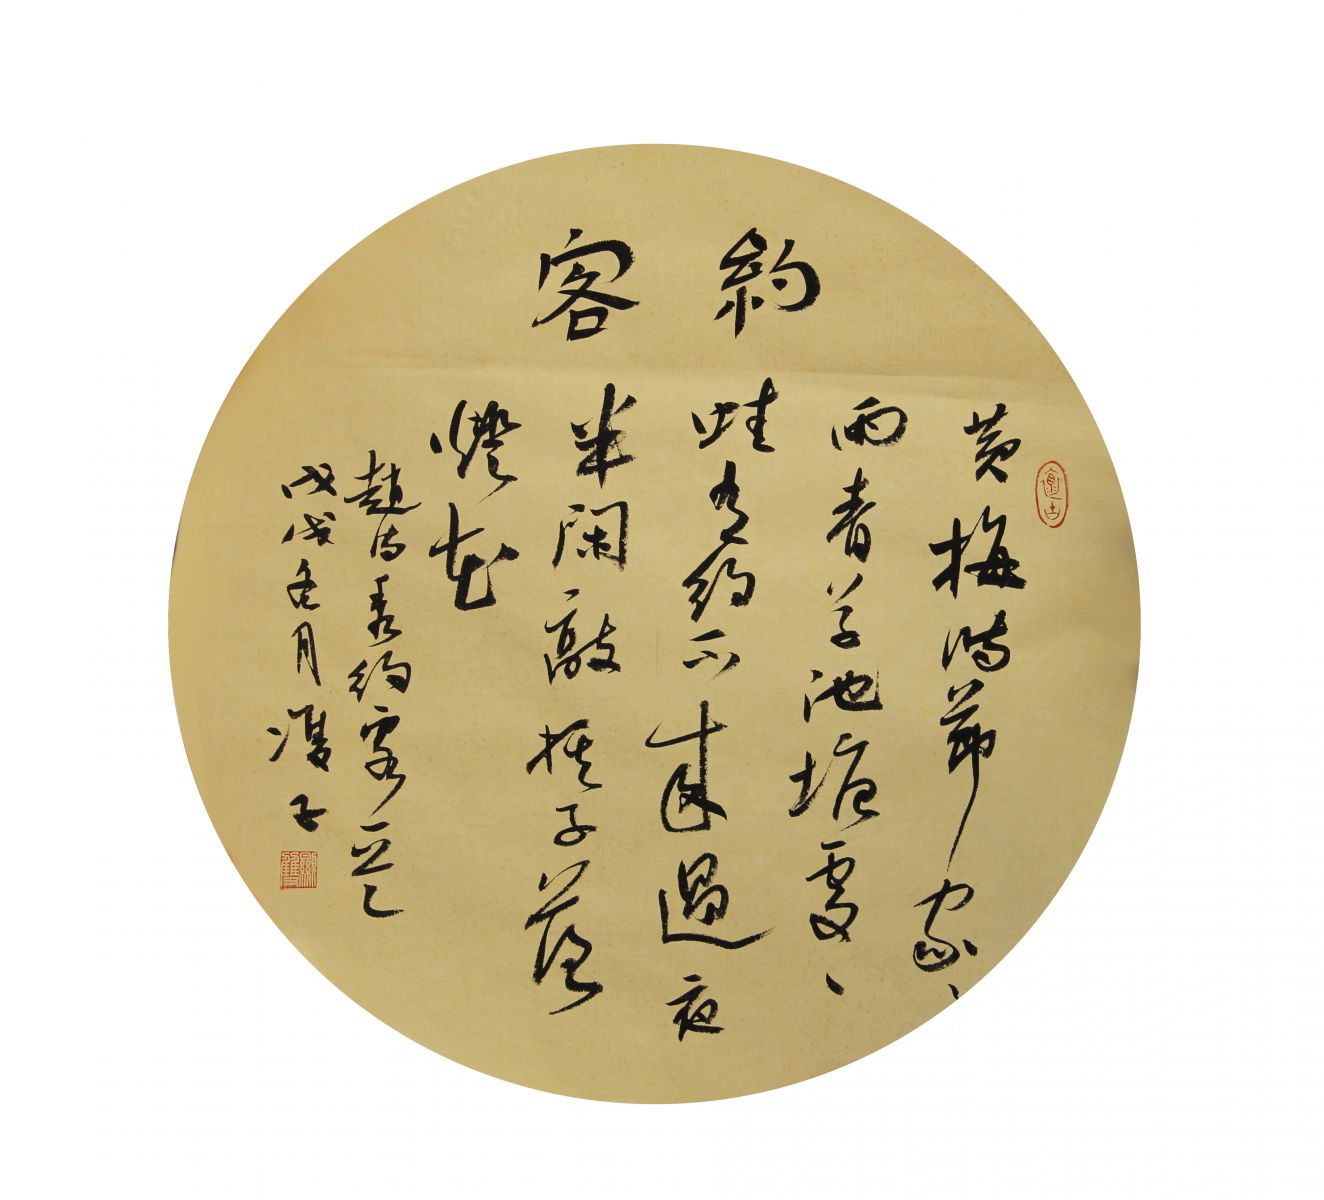 約客
黄梅時節家〻
雨青草池塘處〻
蛙有約不來過夜
半閑敲棋子落
燈花
趙師秀約客
戊戌冬月